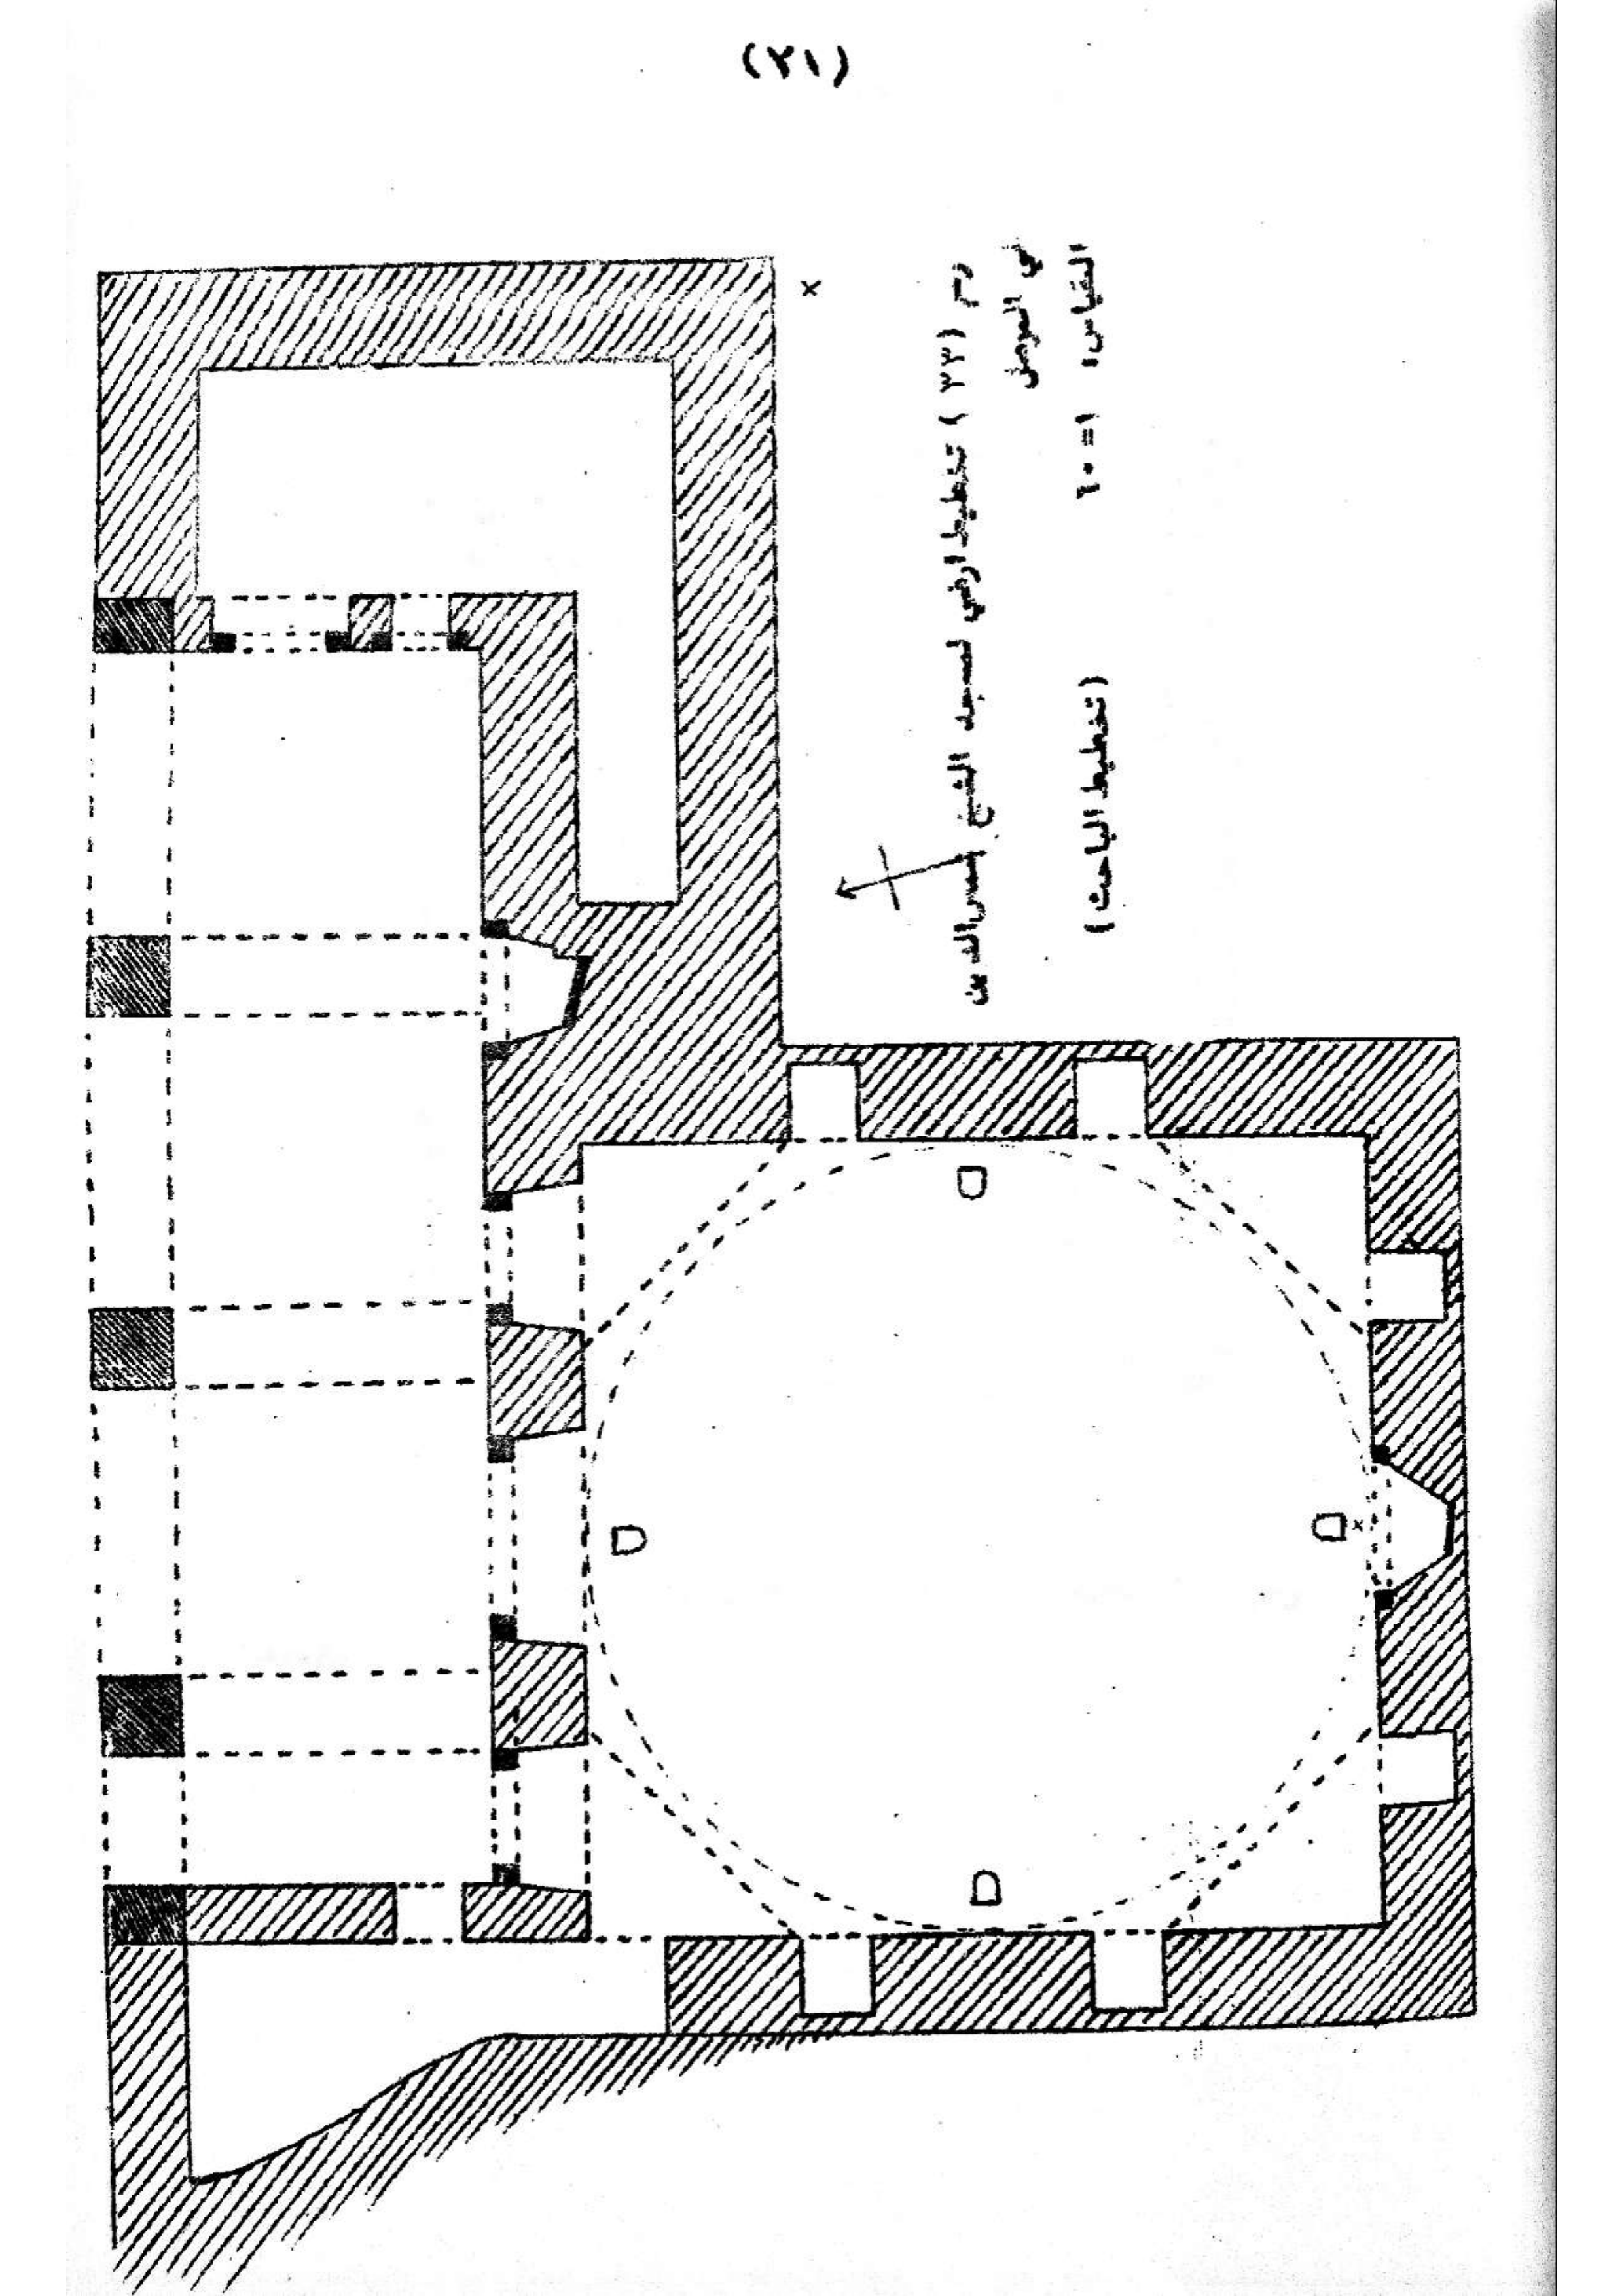 (٢١)
رسم (٣٣) تخطيط ارضي لمسجد الشيخ شمس الدين
في الموصل
المقياس، ١=٦٠ (تخطيط الباحث)